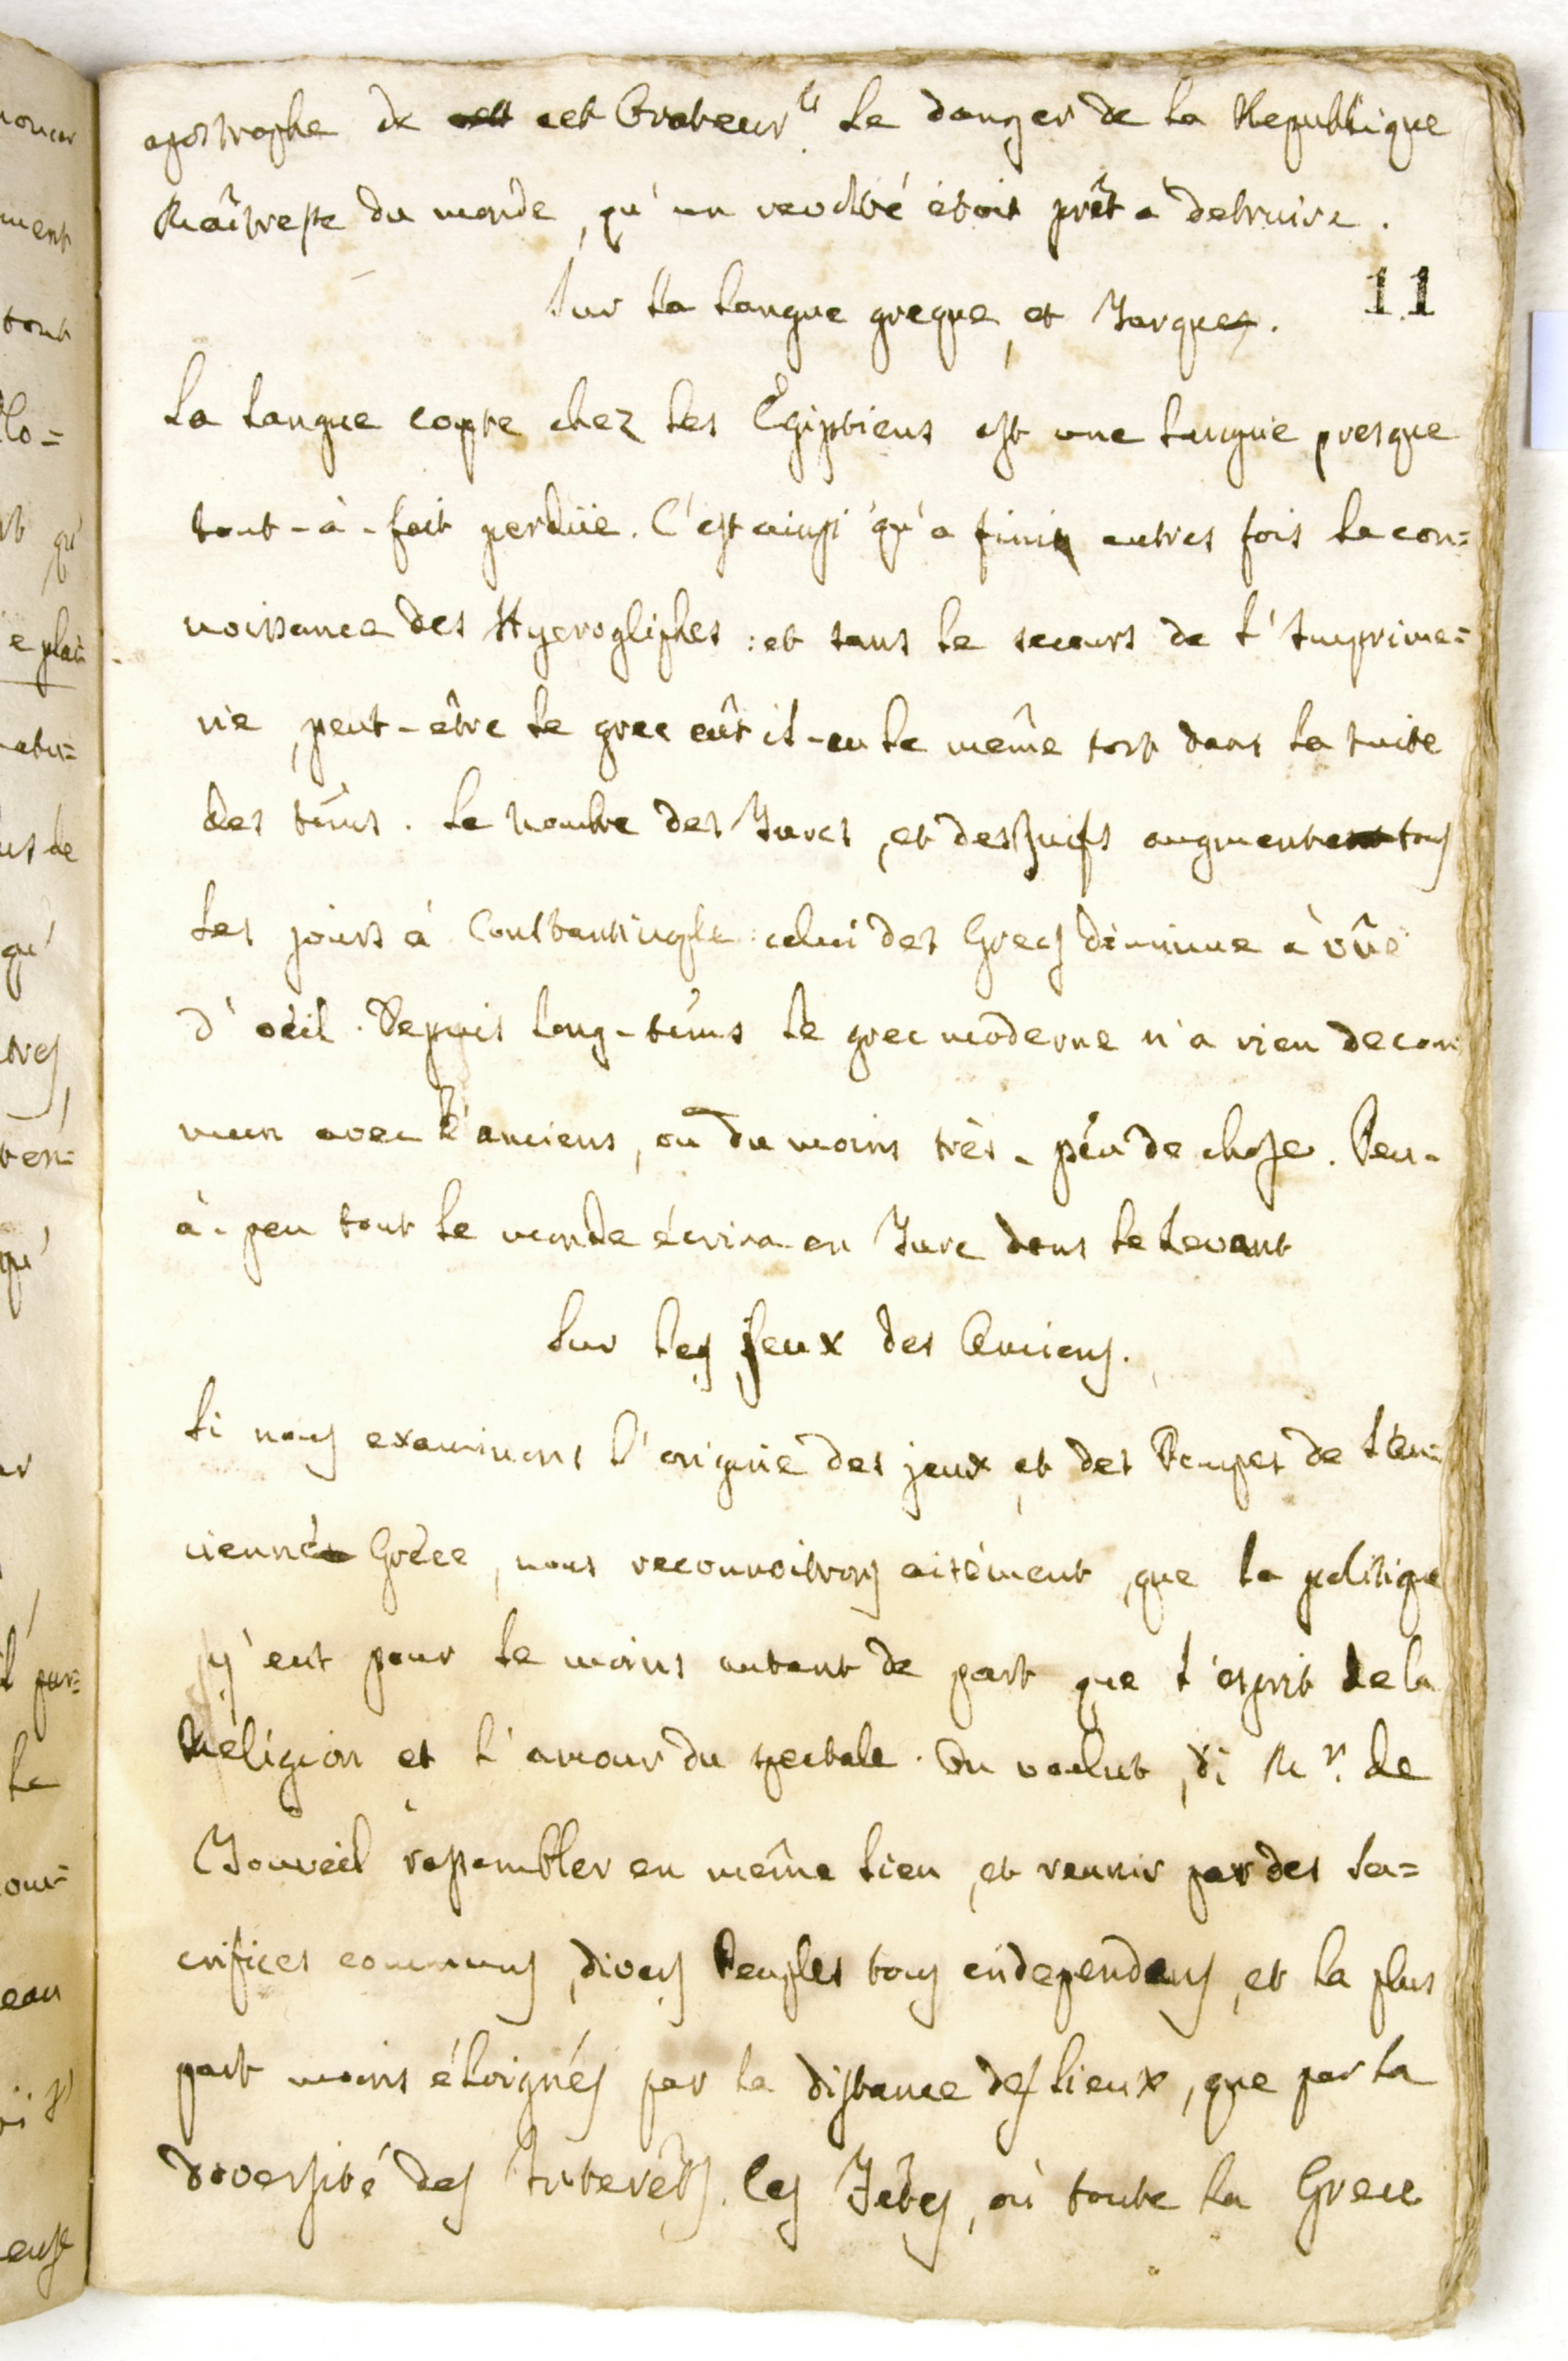 apostrophe de cet cet Orateur le danger de la Republique
Maîtresse du monde, qu'un revolté étoit prêt a detruire.
Sur la langue greque, et Turque. 11
La langue copte chez les Égiptiens est une langue presque
tout-à-fait perdüe. C'est ainsi qu'a fini autres fois la con=
noissance des Hyerogliphes : et sans le secours de l'Imprime=
rie, peut-être le grec eût il-eu le même sort dans la suite
des téms. Le nombre des Turcs, et des Juifs augmente tous
les jours à Constantinople : celui des Grecs diminue à vûe
d'oeil. Depuis long-téms le grec moderne n'a rien de com
mun avec l'anciens, ou du moins très-peu de chose. Peu-
à-peu tout le monde écrira en Turc dans le Levant
Sur les Jeux des Anciens.
Si nous examinons l'origine des jeux, et des Pompes de l'an=
cienne Gréce, nous reconnoitrons aisément, que la politique
y'eut pour le moins autant de part que l'esprit de la
Religion et l'amour du spectale. On voulut, di Mr. de
Tourreil rassembler en même lieu, et reunir par des Sa=
crifices communs, divers Peuples tous independans, et la plus
part moins éloignés par la distance des lieux, que par la
diversité des Interêts. Ces Fêtes, où toute la Grece